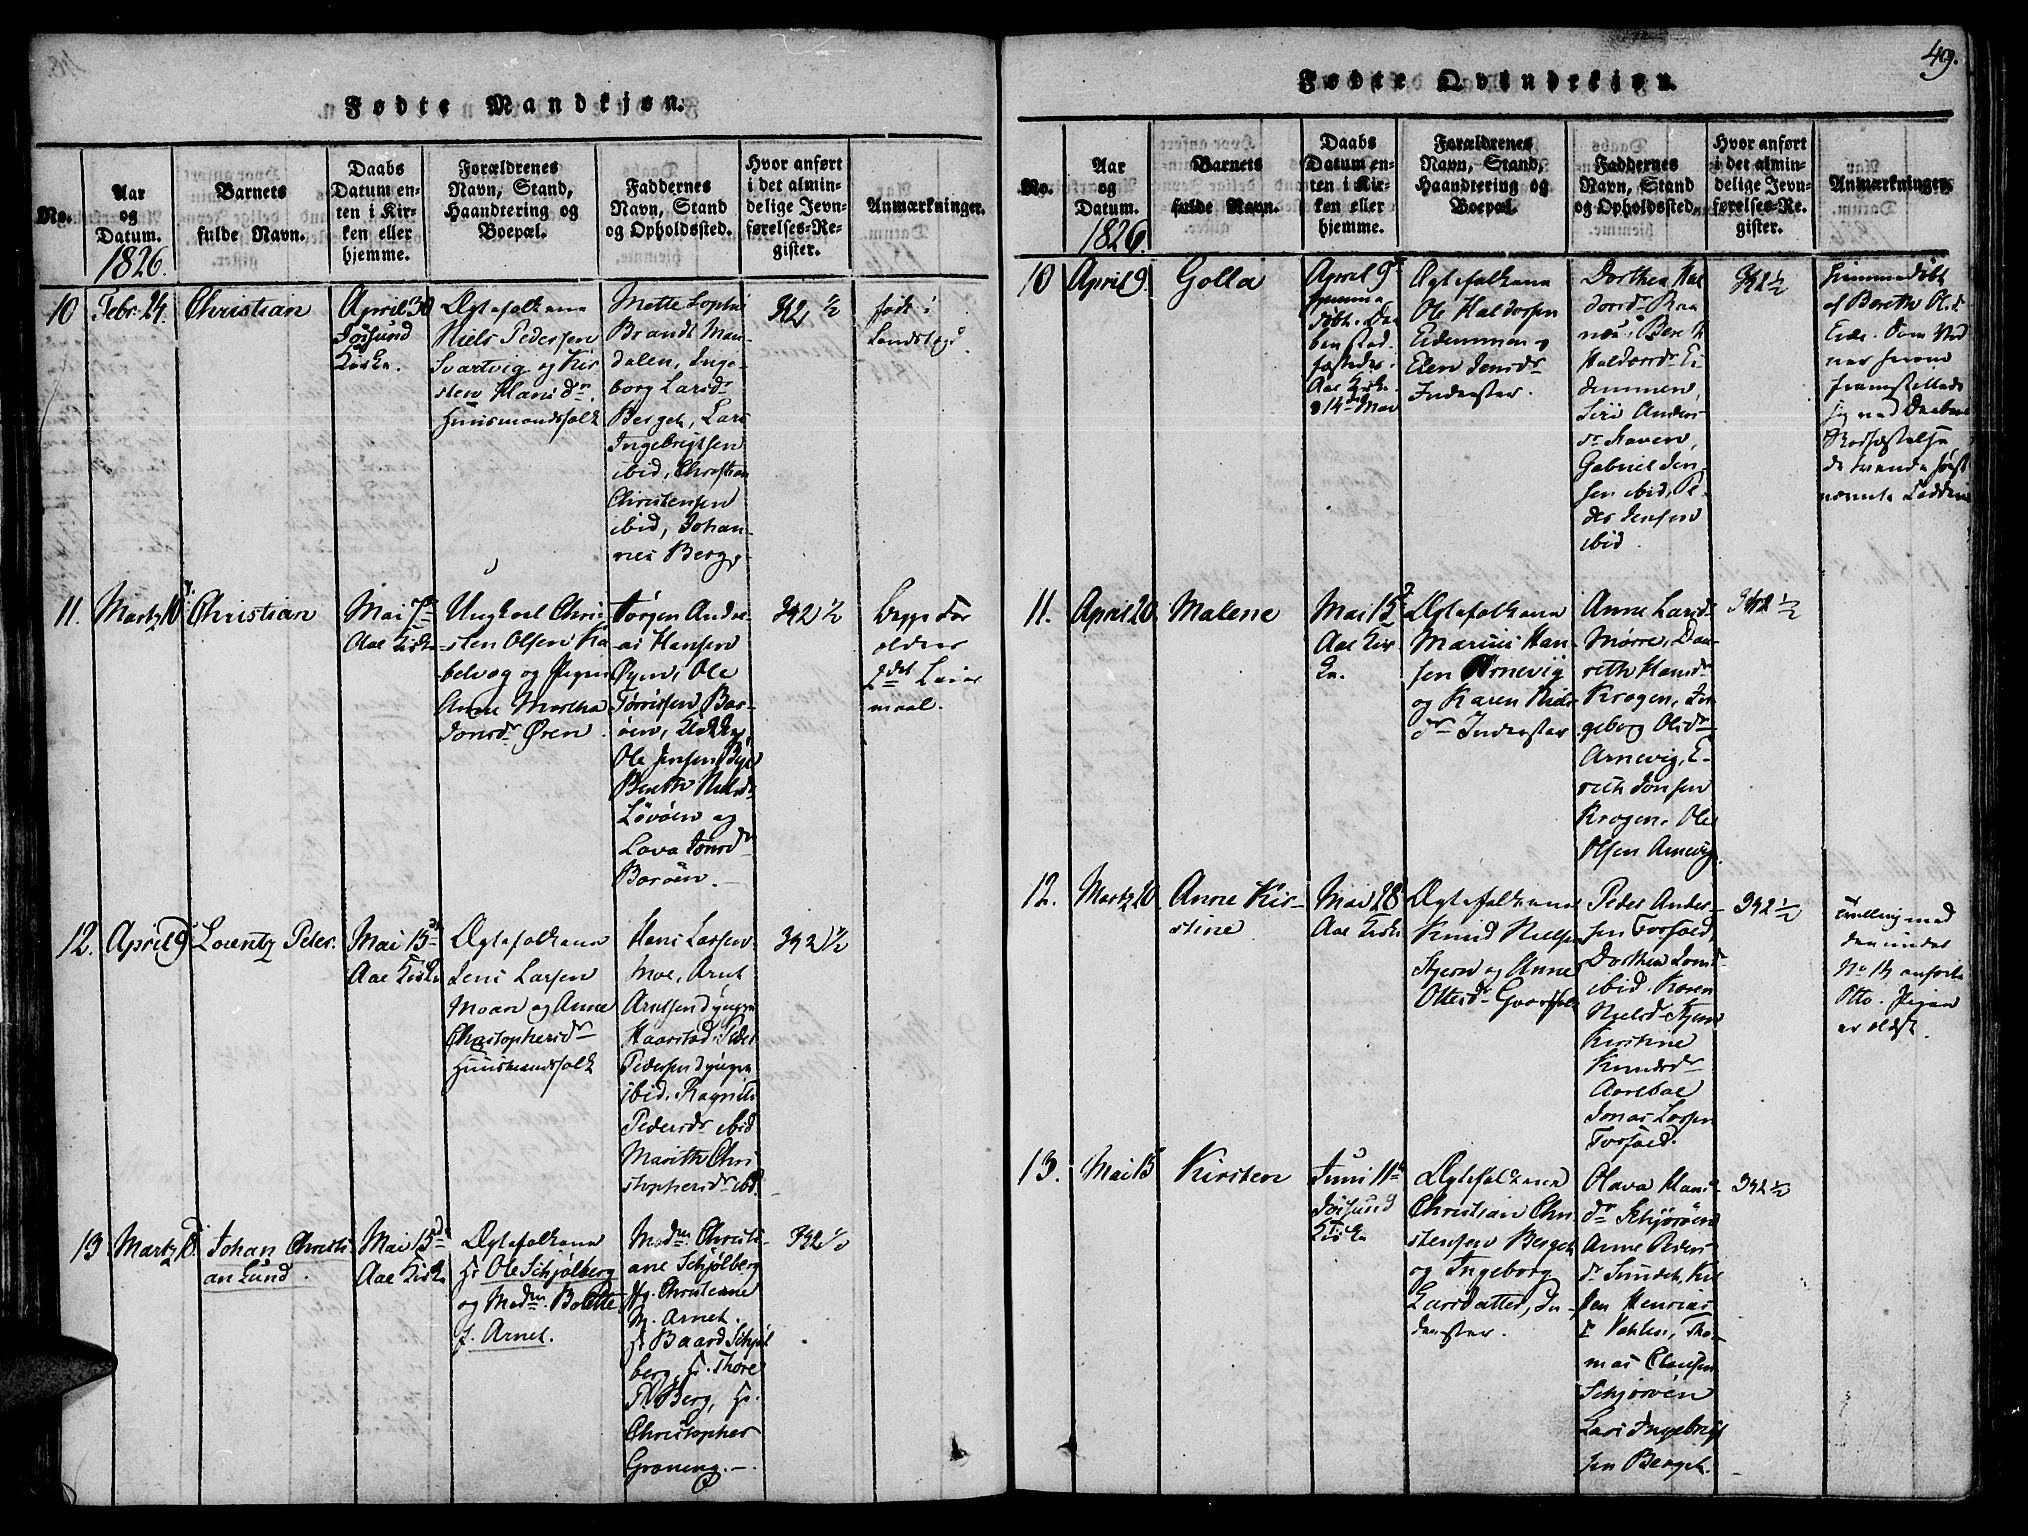 49.
Fødte Mandkjøn.
No.
Aar
og
Datum.
1826.
Barnets
fulde Navn.
Daabs
Datum en-
ten i Kir-
ken eller
hjemme.
Forældrenes
Navn, Stand,
Haandtering og
Boepæl.
Faddernes
Navn, Stand
og Opholdssted.
Hvor anført
i det almin-
delige Jevn-
førelses-Re-
gister.
Anmærkninger.
10
Febr. 24.
Christian
April 30
Josund
Kirke.
Ægtefolkene
Niels Pedersen
Svartvig og Kir-
sten Hansdr.
Huusmandsfolk
Mette Sophie
Brandt Man-
dalen, Inge-
borg Larsdr
Berget, Lars
Ingebrigtsen
ibid, Christian
Christensen
ibid, Johan-
nes Berg.
342 1/2
født i
11.
Martz 10
Christian
Mai 7de
Aae Kirke
Ungkarl Chri-
sten Olsen Ka-
belvog og Pigen
Anne Martha
Jonsdr Øren.
Jørgen Andre-
as Hansen
Øyen, Ole
Tørrissen Bor-
öen,
Ole Jensen
Bereth Nielsdr
Lövöen og
Lava Jonsdr
Boröen.
342 1/2
Begge For
ældres
2det Leier
maal.
12.
April 9
Lorentz Peter.
Mai 15de
Aae Kirke
Ægtefolkene
Jens Larsen
Moan og Anne
Christophersdr
Huusmandsfolk
Hans Larsen
Moe, Arnt
Arntsen d yngre
Haarstad, Peder
Pedersen d yngre
ibid, Ragnild
Pedersdr ibid
Marith Chri-
stophersdr ibd.
342 1/2
13
Martz 18.
Johan Christi-
an Lund.
Mai 15de
Aae Kirke
Ægtefolkene
Hr Ole Schjølberg
og Madm. Bolette
f. Arnet.
Madm Christi-
ane Schjølberg
Jfr. Christianne
M. Arnet.
Hr Baard Schjøl
berg, H. Thore
Th Berg, Hr.
Christopher
Grøning.
342 1/2
Fødte Qvindekjøn.
No.
Aar
og
Datum.
1826.
Barnets
fulde Navn.
Daabs
Datum en-
ten i Kir-
ken eller
hjemme.
Forældrenes
Navn, Stand,
Haandtering og
Boepæl.
Faddernes
Navn, Stand
og Opholdssted.
Hvor anført
i det almin-
delige Jevn-
førelses-Re-
gister.
Anmærkninger.
10
April 9.
Golla
April 9de
hjemme
døbt. Daa
ben stad-
fæstedes i
Aae Kirke
d 14de Mai
Ægtefolkene
Ole Haldorsen
Eidemmen og
Elen Jensdr
Inderster.
Dorthea Hal
dorsdr
Bereth
Haldorsdr Ei-
demmen,
Siri Anders-
dr Haven,
Gabriel Jen-
sen ibid, Pe-
der Jensen
ibid.
342 1/2
Hjemmedøbt
af Bereth Olsd.
Eide. Som Vid
ner herom
fremstillede
sig ved Daabens
Stadfæstelse
de tvende først
nævnte Faddere
11.
April 20
Malene
Mai 15de
Aae Kir
ke.
Ægtefolkene
Marius Han-
sen Arnevig
og Karen Niels
dr Inderster
Anne Larsdr
Mørre, Dor-
reth Hansdr
Krogen, In-
geborg Olsdr
Arnevig, E-
rich Jonsen
Krogen, Ole
Olsen Arnevig.
342 1/2
12.
Martz 20
Anne Kir-
stine
Mai 28
Aae Kirke
Ægtefolkene
Knud Nielsen
Stjern og Anne
Ottersdr
Peder Ander-
sen Torfald,
Dorthea Jonsdr
ibid. Karen
Nielsdr Stjern
Kirstine
Knudsdr
Aarebae
Jonas Larsen
Torfald.
342 1/2
Tvilling med
den under
No 14 anførte
Otto. Pigen
er ældst.
13.
Mai 15
Kirsten
Juni 11te
Josund
Kirke
Ægtefolkene
Christian Chri
stensen Berget
og Ingeborg
Larsdatter, In-
derster.
Olava Hans
dr Schjöröen
Anne Peders
dr Sundet, Kir
sten Henrics
dr Vahlen, Tho-
mas Clausen
Schjöröen
Lars Ingebrigt
sen Berget.
342 1/2